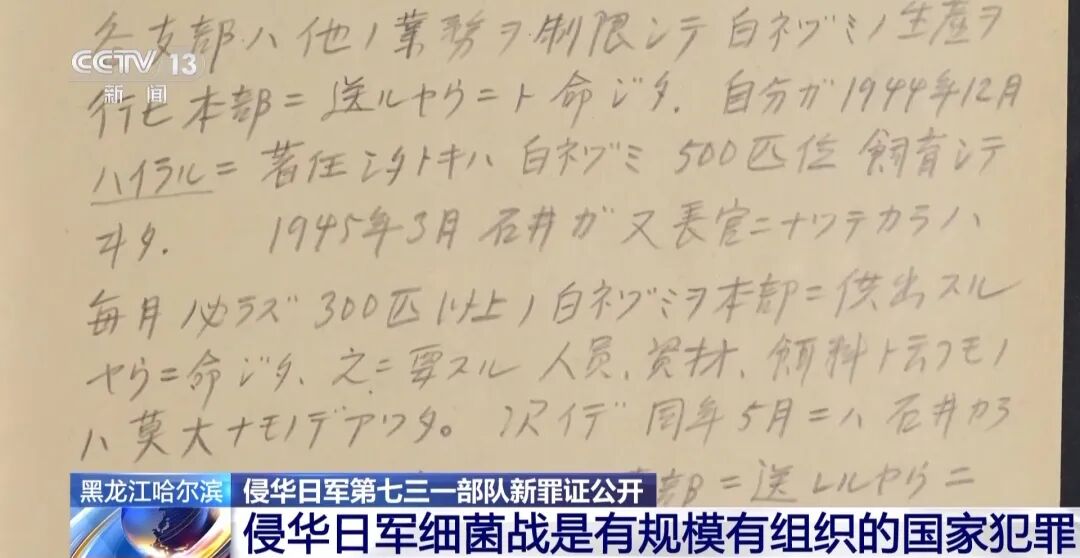 各支部ハ他ノ業務ヲ制限シテ白ネヅミノ生産ヲ
CCTV 13
新闻
行ヒ本部ニ送ルヤウニト命ジタ. 自分ガ1944年12月
ハイラルニ着任シタトキハ白ネヅミ500匹位飼育シテ
ヰタ. 1945年3月石井ガ又長官ニナツテカラハ
毎月必ラズ300匹以上ノ白ネヅミヲ本部ニ供出スル
ヤウニ命ジタ、之ニ要スル人員、資材、飼料ト云フモノ
ハ莫大ナモノデアツタ。次イデ同年5月ニハ石井カラ
部ニ送ルヤウニ
黑龙江哈尔滨
侵华日军第七三一部队新罪证公开
侵华日军细菌战是有规模有组织的国家犯罪